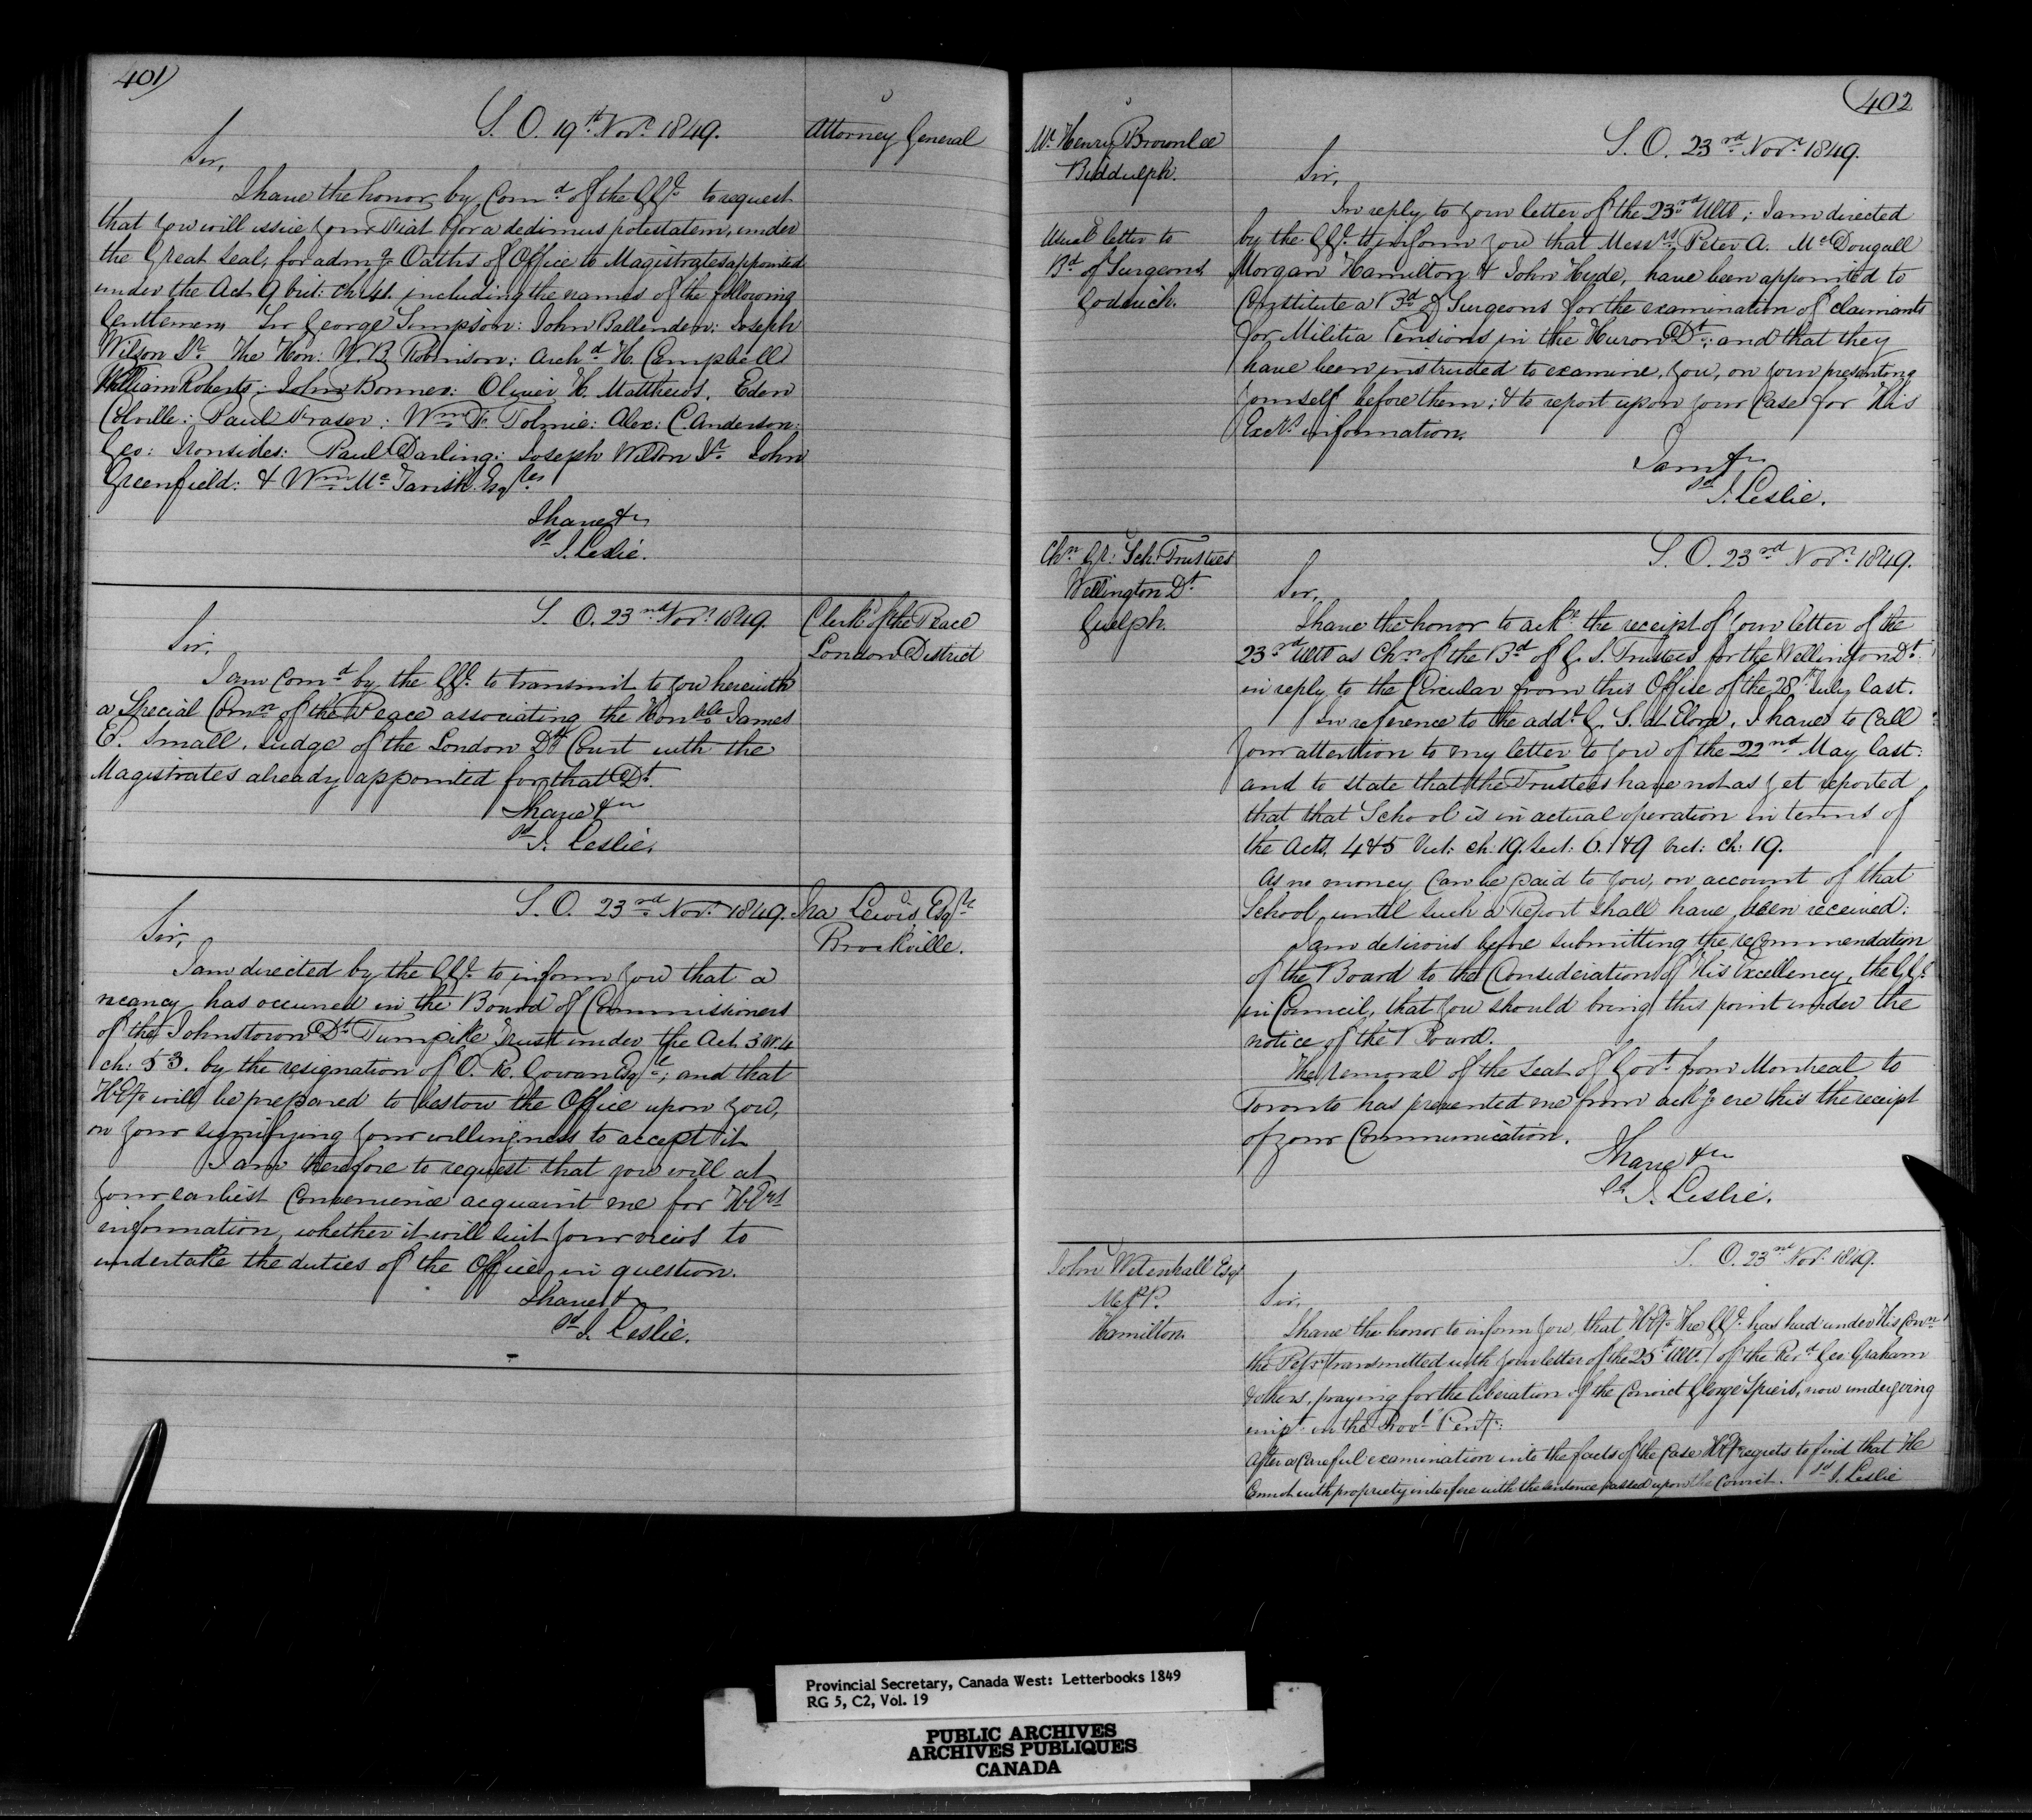 401
S. O. 19th Novr 1849.
Attorney General
Sir,
I have the honor, by Comd of the GGl. to request
that you will issue your Fiat for a dedimus potestatem, under
the Great Seal, for admg Oaths of Office to Magistrates appointed
under the Act 9 Vict: ch: 41. including the names of the following
Gentlemen, Sir George Simpson: John Ballenden: Joseph
Wilson Sr. The Hon: W. B. Robinson: Archd H. Campbell
William Roberts: John Bonner: Oliver H. Matthews, Eden
Colville: Paul Fraser: Wm F. Tolmie: Alex: C. Anderson:
Geo: Ironsides: Paul Darling: Joseph Wilson Jr. John
Greenfield: & Wm McTavish Esqres
I have &c
Sd J. Leslie.
S. O. 23rd Novr 1849.
Clerk of the Peace
London District
Sir,
I am Comd by the GGl. to transmit to you herewith
a Special Comn of the Peace associating the Honble James
E. Small, Judge of the London Dt Court with the
Magistrates already appointed for that Dt.
I have &c
Sd J. Leslie.
S. O. 23rd Novr 1849.
Ira Lewis Esqre
Brockville.
Sir,
I am directed by the GGl. to inform you that a
vacancy has occurred in the Board of Commissioners
of the Johnstown Dt Turnpike Trust under the Act 3 W. 4
ch: 53. by the resignation of O. R. Gowan Esqre; and that
HExy will be prepared to bestow the Office upon you,
on your signifying your willingness to accept it
I am therefore to request that you will at
your earliest convenience acquaint me for HExys
information, whether it will suit your views to
undertake the duties of the Office in question.
I have &c
Sd J. Leslie.
402
Mr. Henry Brownlee
Biddulph.
Usual letter to
Bd of Surgeons
Goderich.
S. O. 23rd Novr 1849.
Sir,
In reply to your letter of the 23rd Ulto; I am directed
by the GGl. to inform you that Messrs Peter A. McDougall
Morgan Hamilton & John Hyde, have been appointed to
Constitute a Bd of Surgeons for the examination of claimants
for Militia Pensions in the Huron Dt; and that they
have been instructed to examine, you, on your presenting
yourself before them; & to report upon your Case for His
Excys information.
I am &c
Sd J. Leslie.
Chn Gr: Sch: Trustees
Wellington Dt
Guelph.
S. O. 23rd Novr 1849.
Sir,
I have the honor to ackn the receipt of your letter of the
23rd Ulto as Chn of the Bd of G. S. Trustees for the Wellington Dt
in reply to the Circular from this Office of the 28th July last.
In reference to the addl G. S. at Elora, I have to call
your attention to my letter to you of the 22nd May last:
and to state that the Trustees have not as yet reported
that that School is in actual operation in terms of
the Acts, 4 & 5 Vict: ch: 19. Sect: 6. & 9 Vict: ch: 19.
As no money can be paid to you, on account of that
School, until such a Report shall have been received:
I am desirous before submitting the recommendation
of the Board to the Consideration of His Excellency, the GGl
in Council, that you should bring this point under the
notice of the Board.
The removal of the Seat of Govt from Montreal to
Toronto has prevented me from ackg ere this the receipt
of your Communication.
I have &c
Sd J. Leslie.
John Wetenhall Esqr
M.P.P.
Hamilton.
S. O. 23rd Novr 1849.
Sir,
I have the honor to inform you, that HExy the GGl. has had under His Conn
the Petn (transmitted with your letter of the 25th Ulto.) of the Revd Geo: Graham
& others, praying for the liberation of the Convict George Spiers, now undergoing
impt in the Provl Penty:
After a Careful examination into the facts of the Case HExy regrets to find that He
Cannot with propriety interfere with the sentence passed upon the Convict. Sd J. Leslie
Provincial Secretary, Canada West: Letterbooks 1849
RG 5, C2, Vol. 19
PUBLIC ARCHIVES
ARCHIVES PUBLIQUES
CANADA